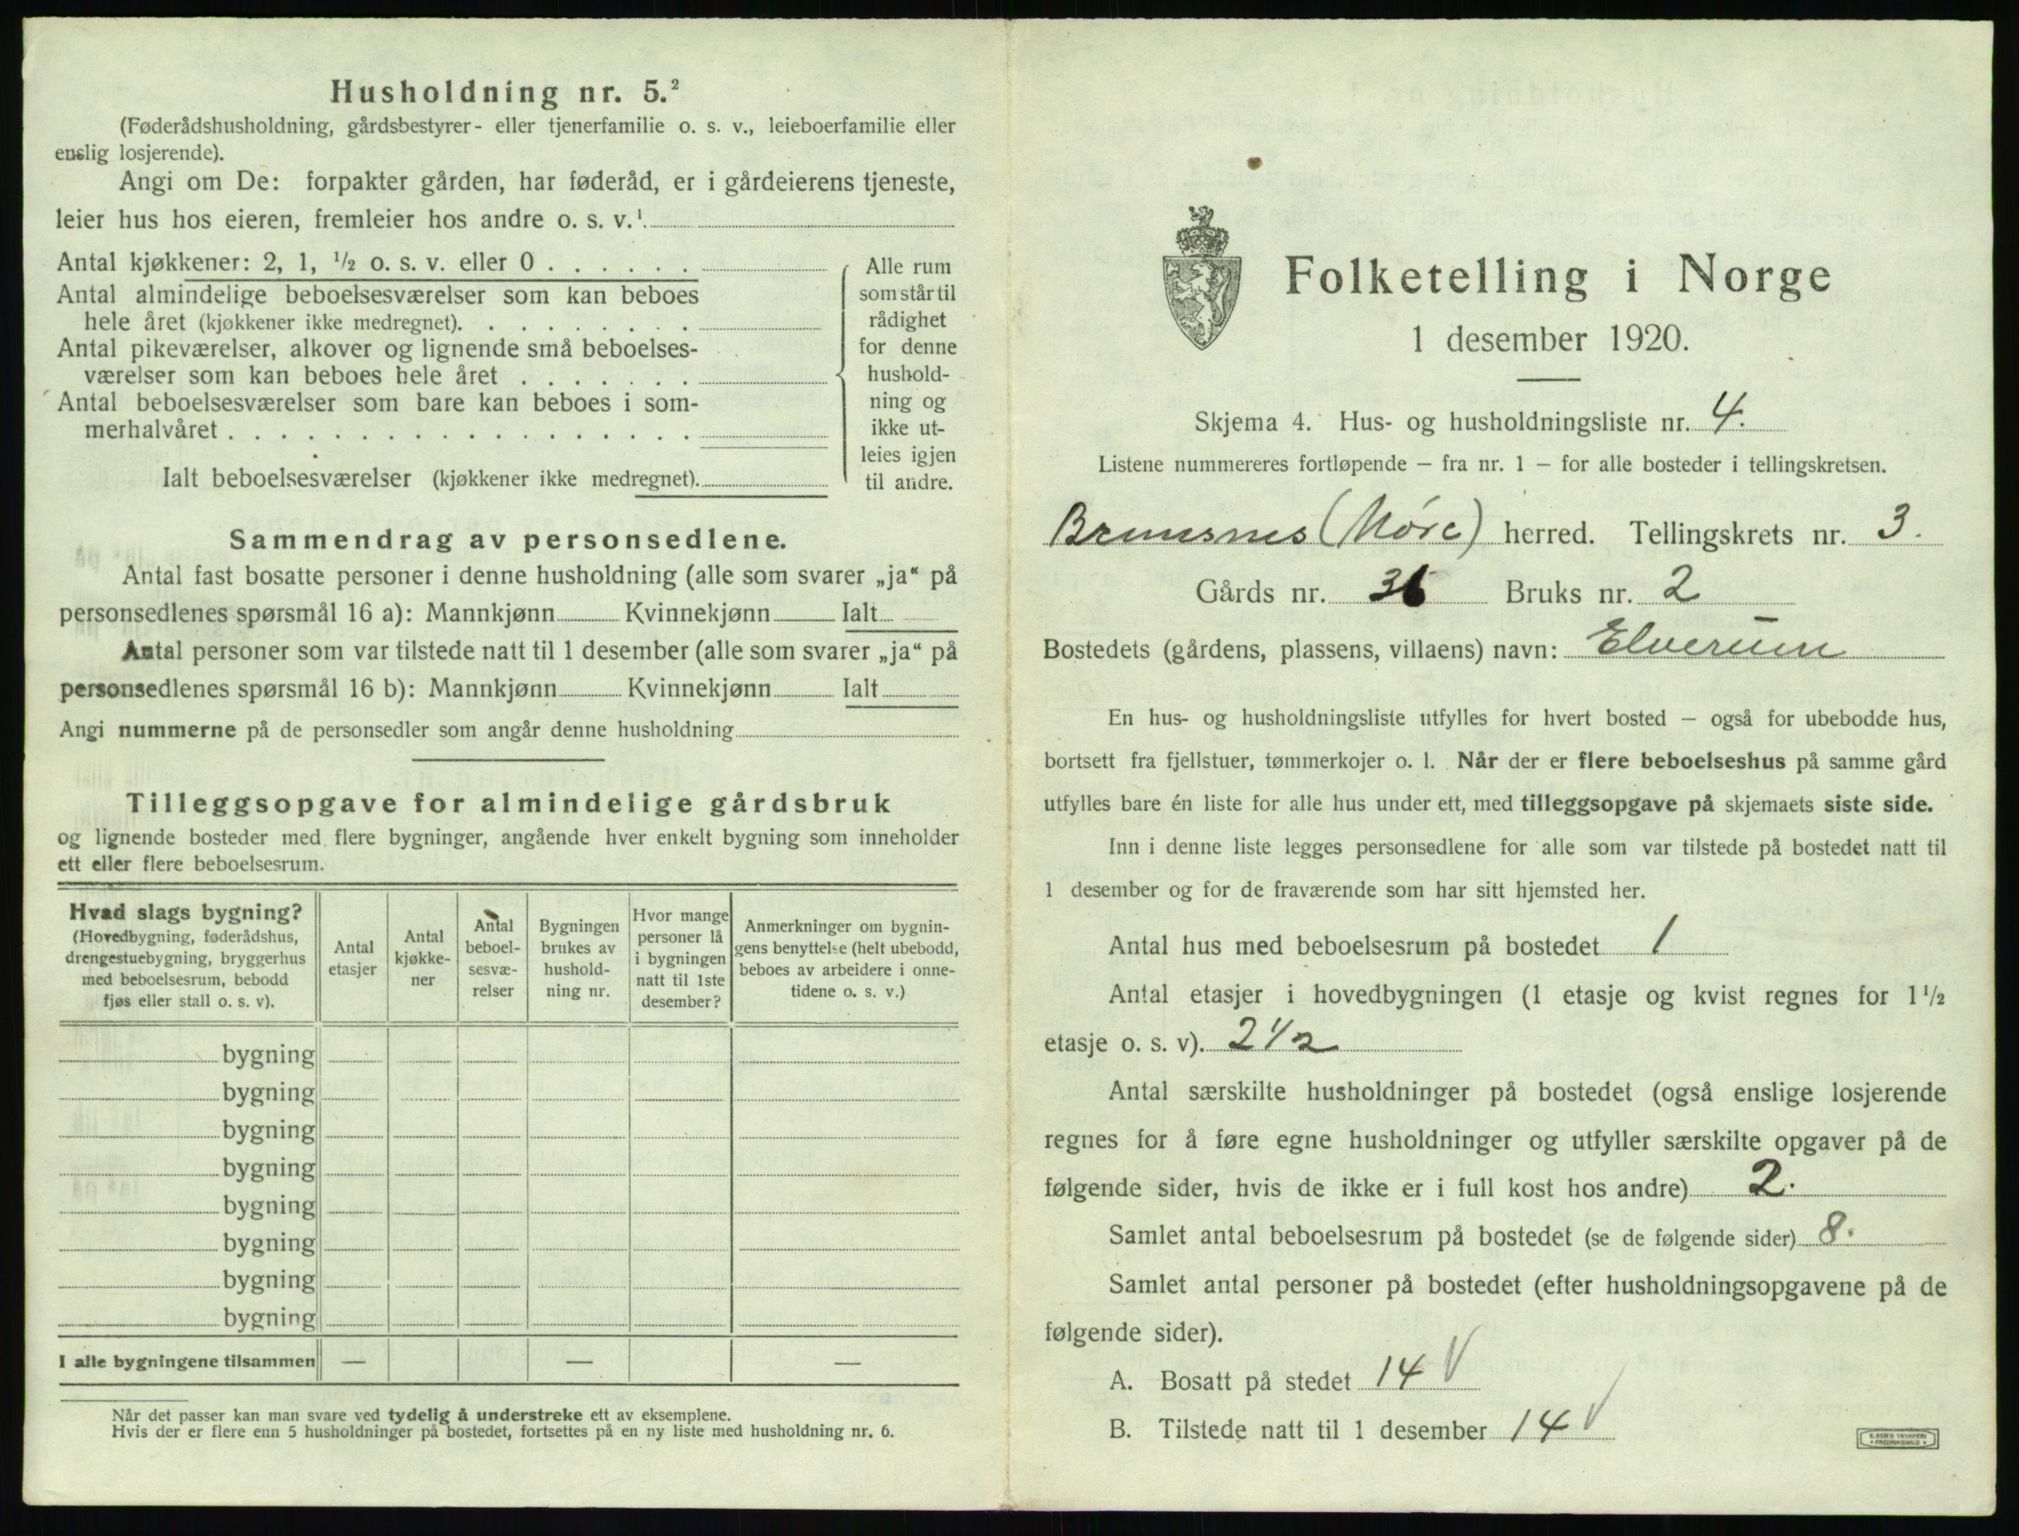 Husholdning nr. 5.²
(Føderådshusholdning, gårdsbestyrer- eller tjenerfamilie o. s. v., leieboerfamilie eller
enslig losjerende).
Angi om De: forpakter gården, har føderåd, er i gårdeierens tjeneste,
leier hus hos eieren, fremleier hos andre o. s. v.¹
Antal kjøkkener: 2, 1, ½ o. s. v. eller 0 . . . . . .
Antal almindelige beboelsesværelser som kan beboes
hele året (kjøkkener ikke medregnet). . . . . . . . .
Antal pikeværelser, alkover og lignende små beboelses-
værelser som kan beboes hele året . . . . . . .
Antal beboelsesværelser som bare kan beboes i som-
merhalvåret . . . . . . . . . . . . . . . . . .
Ialt beboelsesværelser (kjøkkener ikke medregnet).
Alle rum
som står til
rådighet
for denne
hushold-
ning og
ikke ut-
leies igjen
til andre.
Sammendrag av personsedlene.
Antal fast bosatte personer i denne husholdning (alle som svarer „ja“ på
personsedlenes spørsmål 16 a): Mannkjønn Kvinnekjønn Ialt
Antal personer som var tilstede natt til 1 desember (alle som svarer „ja“ på
personsedlenes spørsmål 16 b): Mannkjønn Kvinnekjønn Ialt
Angi nummerne på de personsedler som angår denne husholdning
Tilleggsopgave for almindelige gårdsbruk
og lignende bosteder med flere bygninger, angående hver enkelt bygning som inneholder
ett eller flere beboelsesrum.
Hvad slags bygning?
(Hovedbygning, føderådshus,
drengestuebygning, bryggerhus
med beboelsesrum, bebodd
fjøs eller stall o. s. v).
Antal
etasjer
Antal
kjøkke-
ner
Antal
beboel-
sesvæ-
relser
Bygningen
brukes av
hushold-
ning nr.
Hvor mange
personer lå
i bygningen
natt til 1ste
desember?
Anmerkninger om bygnin-
gens benyttelse (helt ubebodd,
beboes av arbeidere i onne-
tidene o. s. v.)
bygning
bygning
bygning
bygning
bygning
bygning
bygning
bygning
I alle bygningene tilsammen — — —
Når det passer kan man svare ved tydelig å understreke ett av eksemplene.
Hvis der er flere enn 5 husholdninger på bostedet, fortsettes på en ny liste med husholdning nr. 6.
Folketelling i Norge
1 desember 1920.
Skjema 4. Hus- og husholdningsliste nr. 4.
Listene nummereres fortløpende – fra nr. 1 – for alle bosteder i tellingskretsen.
Bremsnes (Møre) herred. Tellingskrets nr. 3.
Gårds nr. 36 Bruks nr. 2
Bostedets (gårdens, plassens, villaens) navn: Elverum
En hus- og husholdningsliste utfylles for hvert bosted – også for ubebodde hus,
bortsett fra fjellstuer, tømmerkojer o. l. Når der er flere beboelseshus på samme gård
utfylles bare én liste for alle hus under ett, med tilleggsopgave på skjemaets siste side.
Inn i denne liste legges personsedlene for alle som var tilstede på bostedet natt til
1 desember og for de fraværende som har sitt hjemsted her.
Antal hus med beboelsesrum på bostedet 1
Antal etasjer i hovedbygningen (1 etasje og kvist regnes for 1½
etasje o. s. v). 2½
Antal særskilte husholdninger på bostedet (også enslige losjerende
regnes for å føre egne husholdninger og utfyller særskilte opgaver på de
følgende sider, hvis de ikke er i full kost hos andre) 2.
Samlet antal beboelsesrum på bostedet (se de følgende sider) 8.
Samlet antal personer på bostedet (efter husholdningsopgavene på de
følgende sider).
A. Bosatt på stedet 14 V
B. Tilstede natt til 1 desember 14 V